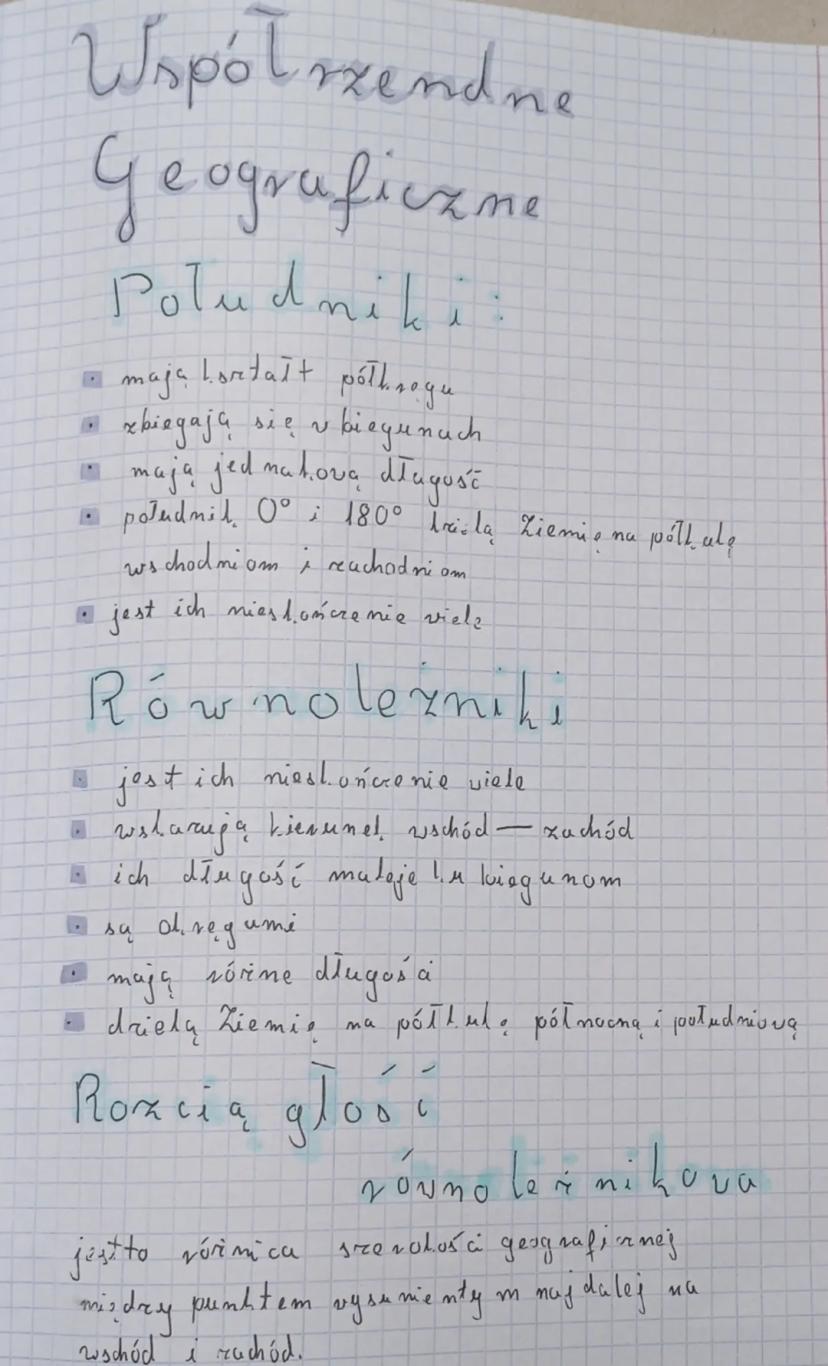 Współrzendne
Geograficzne
Południki:
mają kształt półkregu
zbiegają się w biegunach
mają jednakową długość
południk 0° i 180° dzielą Ziemię na półkulę
wschodniom i zachodniom
jest ich nieskończenie wiele
Równoleżniki
jest ich nieskończenie wiele
wskazują kierunek wschód — zachód
ich długość maleje ku biegunom
są okręgami
mają różne długości
dzielą Ziemię na półkulę północną i południową
Rozciągłość
równoleżnikowa
jest to różnica szerokości geograficznej
między punktem wysunientym najdalej na
wschód i zachód.